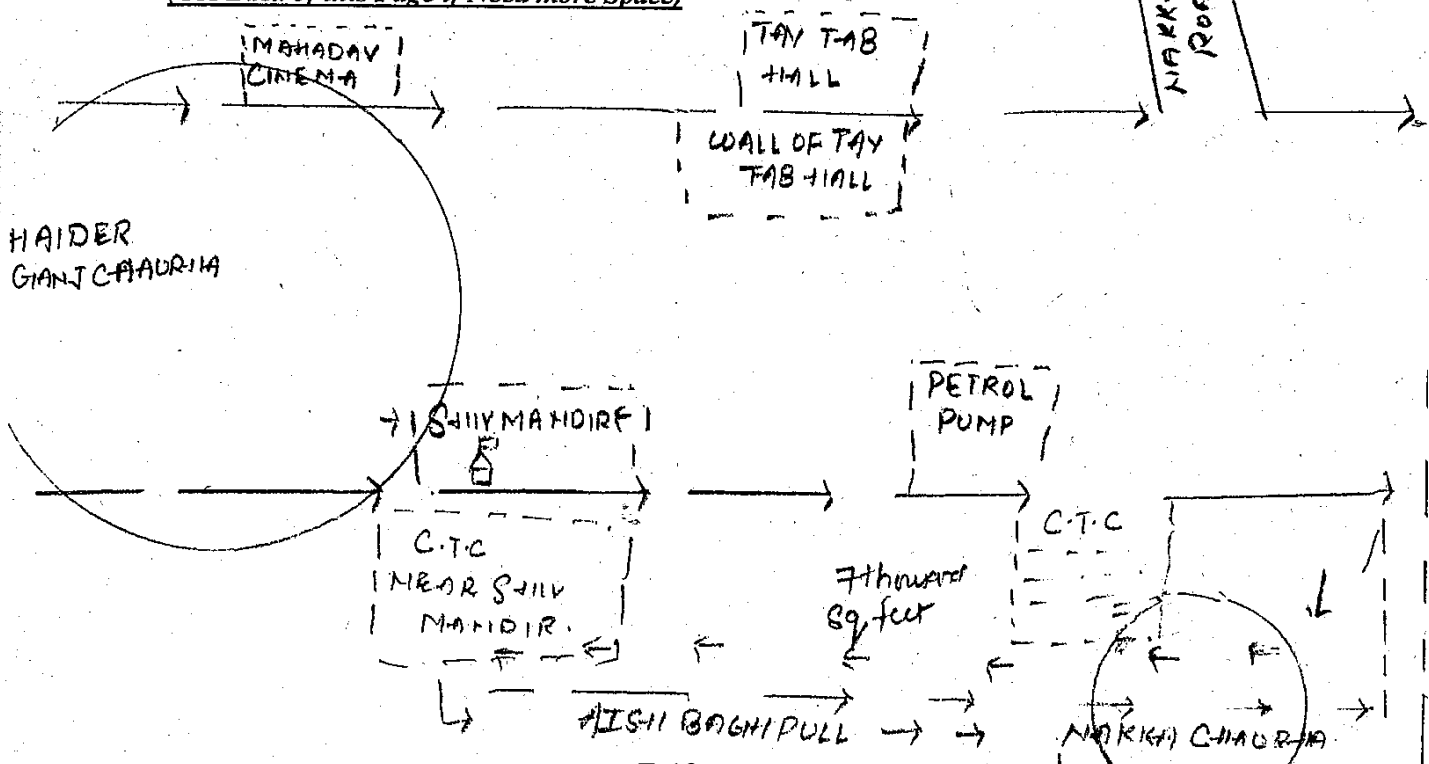 (Use Back of this Page if Need more Space)
MAHADAV
CINEMA
TAY TAB
HALL
WALL OF TAY
TAB HALL
ROA
HAIDER
GANJ CHAURHA
SHIV MANDIRE
PETROL
PUMP
C.T.C
NEAR SHIV
MANDIR.
7 thousand
sq. feet
C.T.C
AISH BAGH PULL
NAKKHA CHAURHA